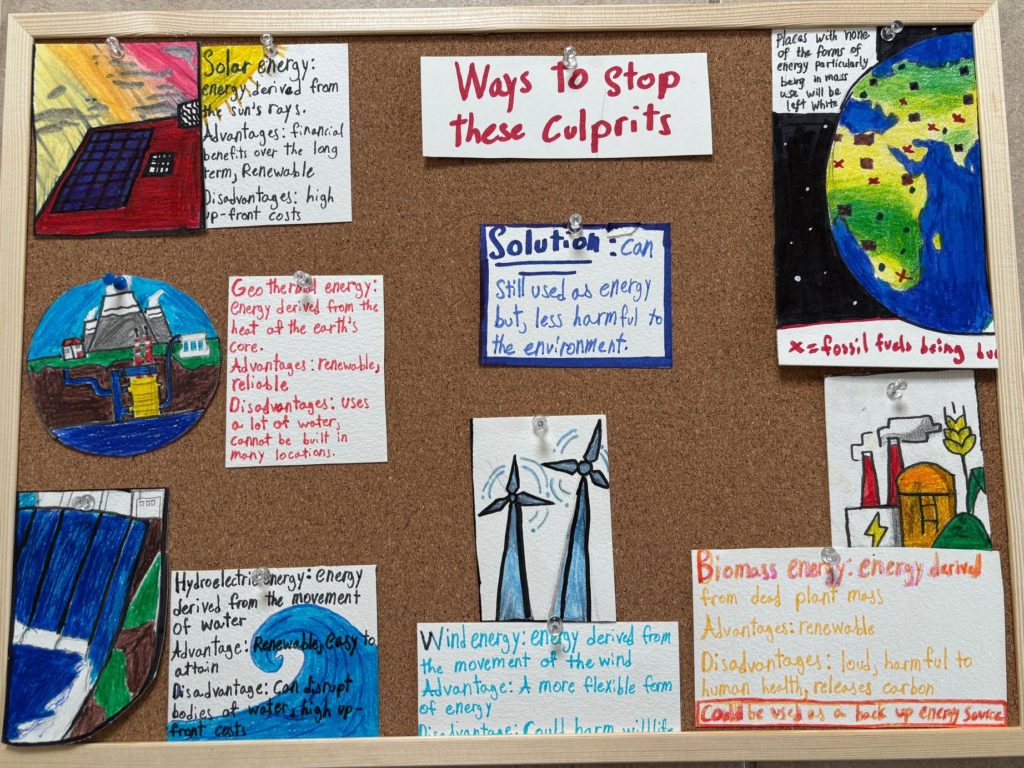 Ways To Stop
these Culprits
Solar energy:
energy derived from
the sun's rays.
Advantages: financial
benefits over the long
term, Renewable
Disadvantages: high
up-front costs
Places with none
of the forms of
energy particularly
being in mass
use will be
left white
x=fossil fuels being bu
Solution: can
still used as energy
but, less harmful to
the environment.
Geothermal energy:
energy derived from the
heat of the earth's
core.
Advantages: renewable,
reliable
Disadvantages: uses
a lot of water,
cannot be built in
many locations.
Hydroelectric energy: energy
derived from the movement
of water
Advantage: Renewable, easy to
attain
Disadvantage: Can disrupt
bodies of water, high up-
front costs
Wind energy: energy derived from
the movement of the wind
Advantage: A more flexible form
of energy
Disadvantage: Could harm willife
Biomass energy: energy derived
from dead plant mass
Advantages: renewable
Disadvantages: loud, harmful to
human health, releases carbon
Could be used as a back up energy source